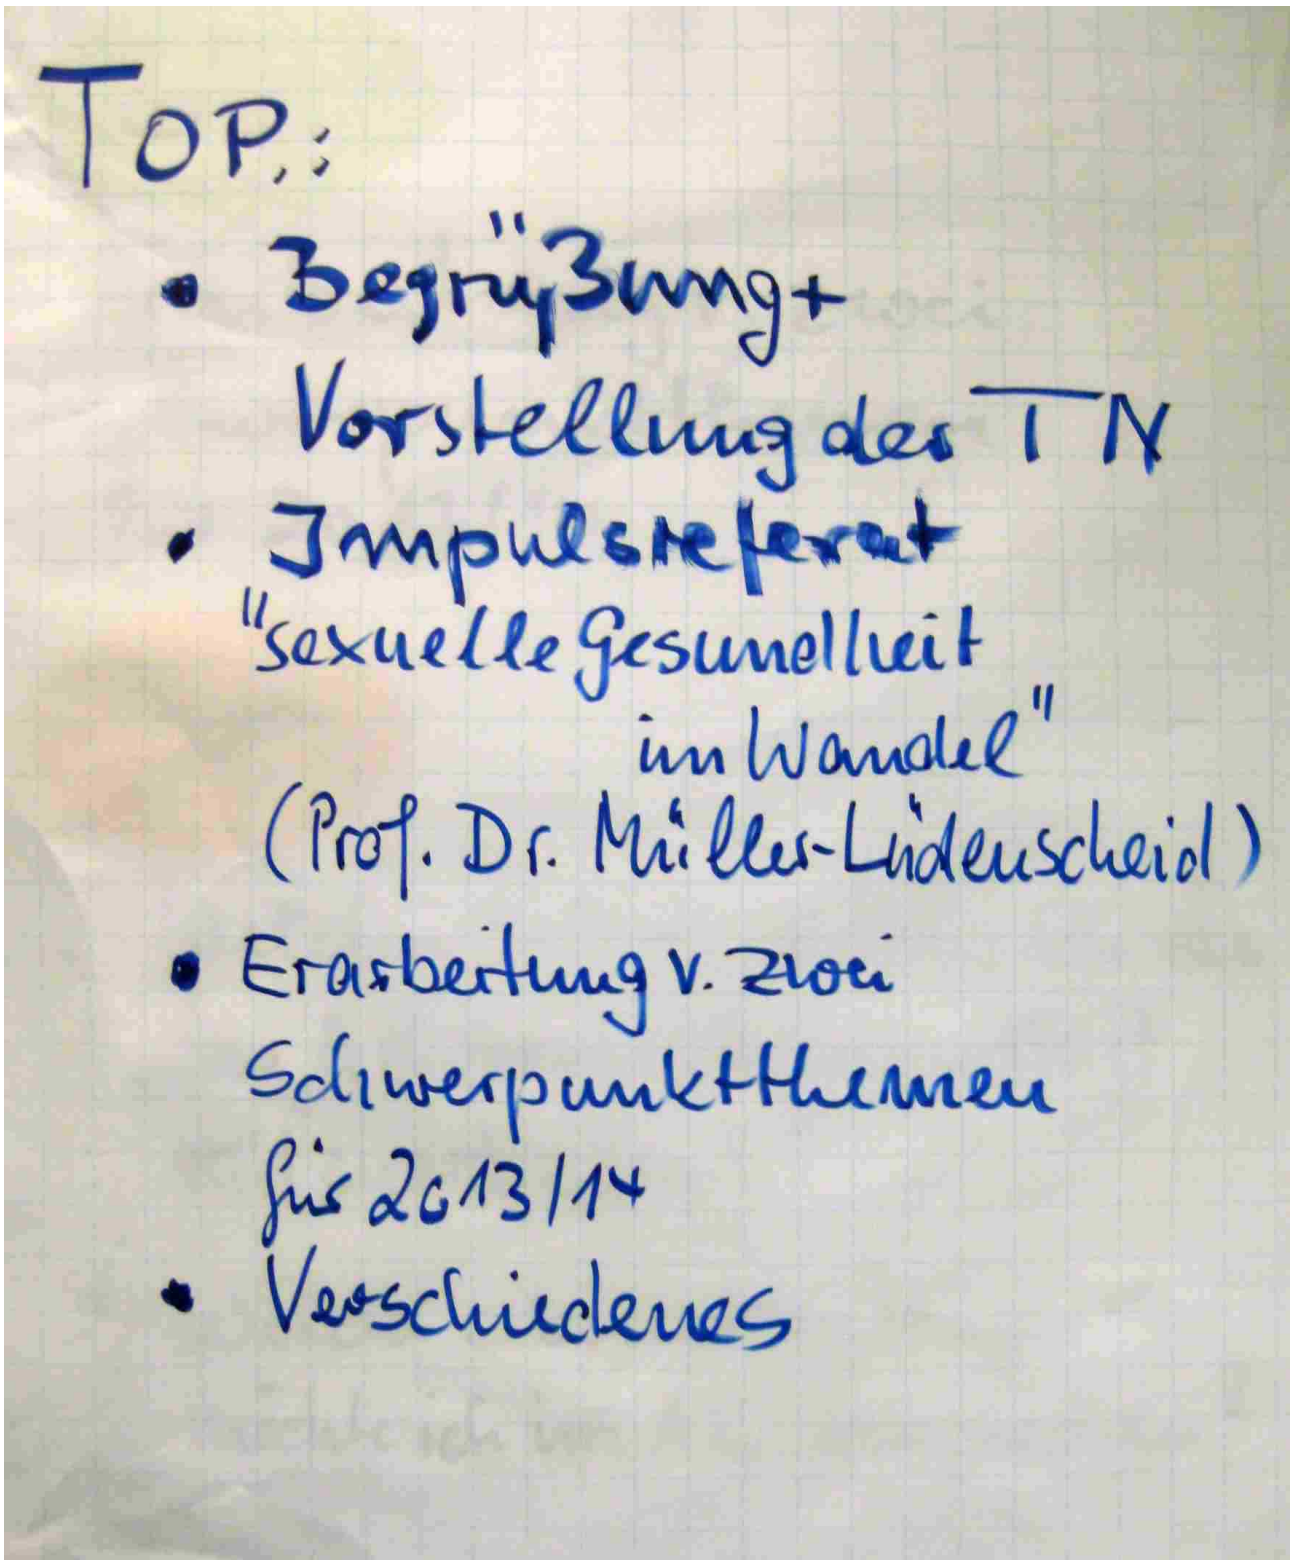 TOP.:
• Begrüßung +
Vorstellung der TN
• Impulsreferat
"sexuelle Gesundheit
im Wandel"
(Prof. Dr. Müller-Lüdenscheid)
• Erarbeitung v. zwei
Schwerpunktthemen
für 2013/14
• Verschiedenes